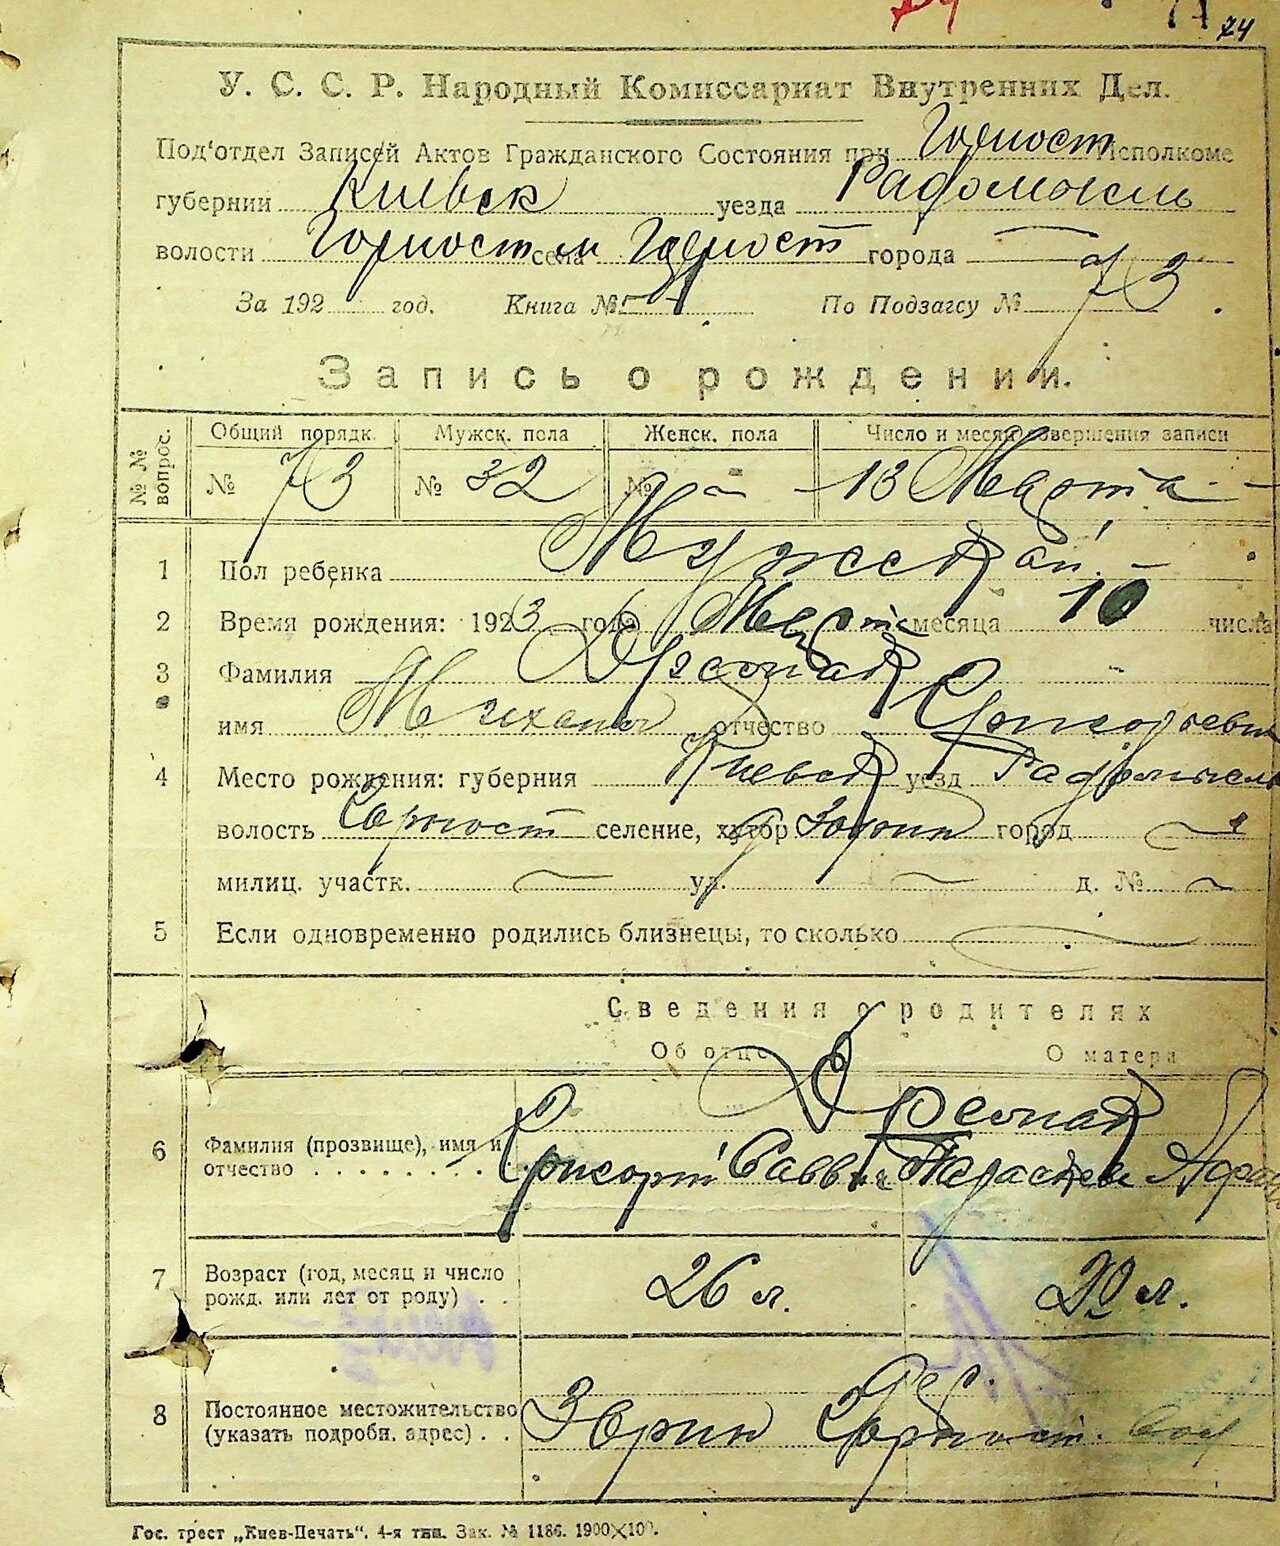 74
У. С. С. Р. Народный Комиссариат Внутренних Дел.
Под'отдел Записей Актов Гражданского Состояния при Горност Исполкоме
губернии Киевск уезда Радомысль
волости Горностм села Горност города —
За 192 год. Книга № 1 По Подзагсу № 73.
Запись о рождении.
№ № вопрос. Общий порядк. Мужск. пола Женск. пола Число и месяц совершения записи
№ 73 № 32 № – 13 Марта
1 Пол ребенка Мужской
2 Время рождения: 1923 года Март месяца 10 числа
3 Фамилия
имя Михаил отчество Григорьевич
4 Место рождения: губерния Киевск уезд Радомысль
волость Горност селение, хутор город —
милиц. участк. — ул. — д. № —
5 Если одновременно родились близнецы, то сколько —
Сведения о родителях
Об отце О матери
6 Фамилия (прозвище), имя и отчество
Григорий Саввич
7 Возраст (год, месяц и число рожд. или лет от роду) . . 26 л. 20 л.
8 Постоянное местожительство (указать подробн. адрес) . . Горност. вол
Гос. трест „Киев-Печать“. 4-я тип. Зак. № 1186. 1900×100.